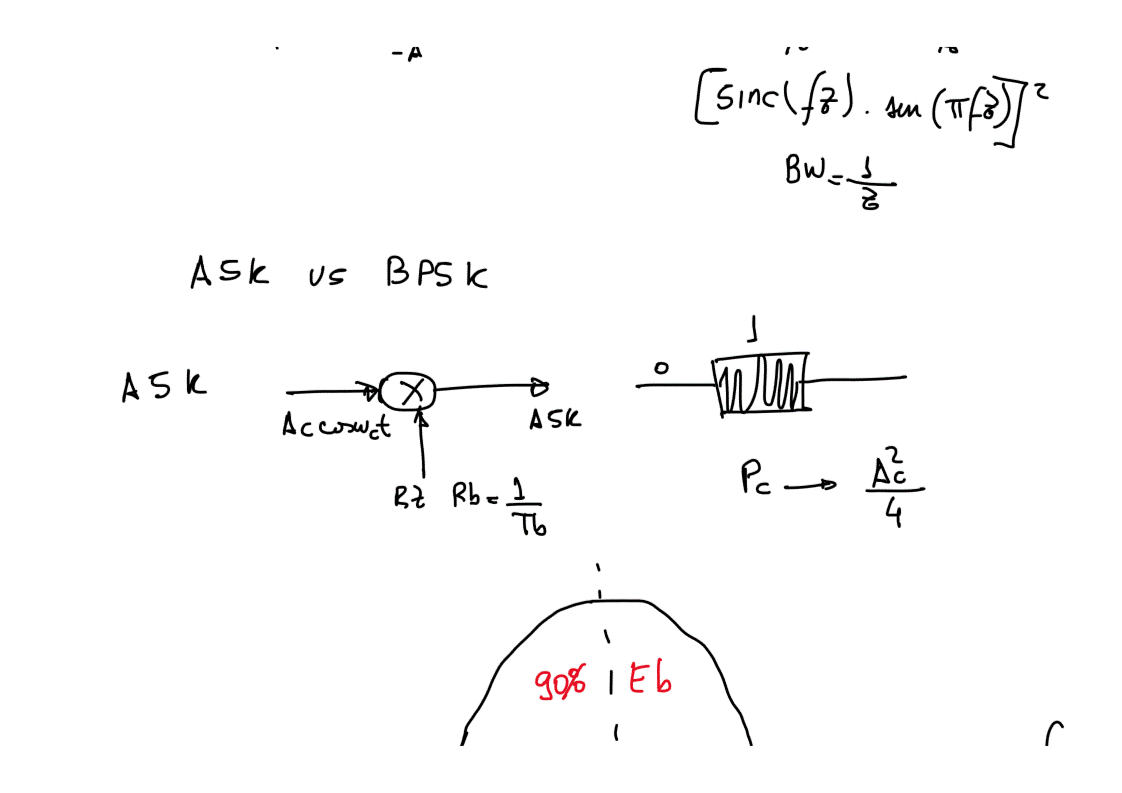 -A
[Sinc(fz). sen(πfz)]²
BW=1/z
ASK vs BPSK
ASK
Ac coswct
ASK
RZ Rb=1/Tb
0 1
Pc → Ac²/4
90% Eb